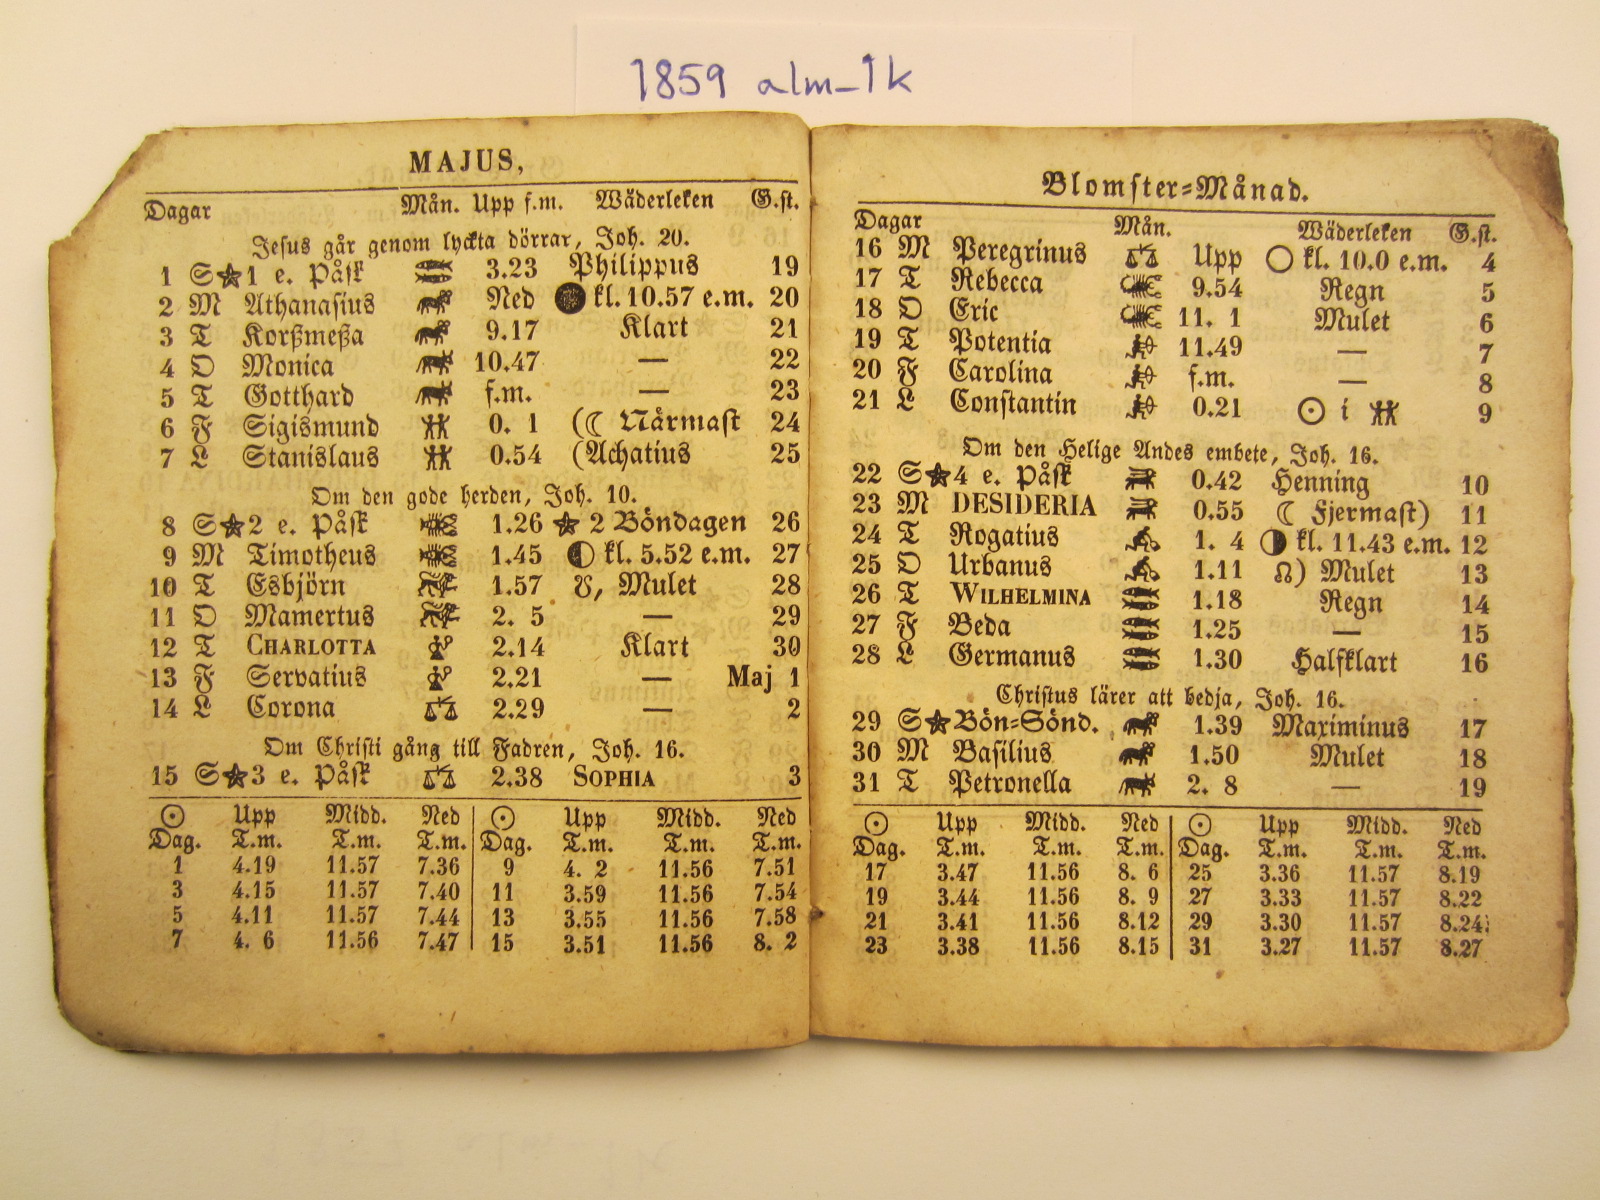 1859 alm_1k
MAJUS,
Dagar Mån. Upp f.m. Wäderleken G.st.
Jesus går genom lyckta dörrar, Joh. 20.
1 S★1 e. Påsk 3.23 Philippus 19
2 M Athanasius Ned ● kl. 10.57 e.m. 20
3 T Korßmeßa 9.17 Klart 21
4 O Monica 10.47 — 22
5 T Gotthard f.m. — 23
6 F Sigismund 0. 1 (☾ Närmast 24
7 L Stanislaus 0.54 (Achatius 25
Om den gode herden, Joh. 10.
8 S★2 e. Påsk 1.26 ★ 2 Böndagen 26
9 M Timotheus 1.45 ◐ kl. 5.52 e.m. 27
10 T Esbjörn 1.57 ☋, Mulet 28
11 O Mamertus 2. 5 — 29
12 T CHARLOTTA 2.14 Klart 30
13 F Servatius 2.21 — Maj 1
14 L Corona 2.29 — 2
Om Christi gång till Fadren, Joh. 16.
15 S★3 e. Påsk 2.38 SOPHIA 3
☉ Upp Midd. Ned ☉ Upp Midd. Ned
Dag. T.m. T.m. T.m. Dag. T.m. T.m. T.m.
1 4.19 11.57 7.36 9 4. 2 11.56 7.51
3 4.15 11.57 7.40 11 3.59 11.56 7.54
5 4.11 11.57 7.44 13 3.55 11.56 7.58
7 4. 6 11.56 7.47 15 3.51 11.56 8. 2
Blomster=Månad.
Dagar Mån. Wäderleken G.st.
16 M Peregrinus Upp ○ kl. 10.0 e.m. 4
17 T Rebecca 9.54 Regn 5
18 O Eric 11. 1 Mulet 6
19 T Potentia 11.49 — 7
20 F Carolina f.m. — 8
21 L Constantin 0.21 ☉ i ♊ 9
Om den Helige Andes embete, Joh. 16.
22 S★4 e. Påsk 0.42 Henning 10
23 M DESIDERIA 0.55 ☾ Fjermast) 11
24 T Rogatius 1. 4 ◑ kl. 11.43 e.m. 12
25 O Urbanus 1.11 ☊) Mulet 13
26 T WILHELMINA 1.18 Regn 14
27 F Beda 1.25 — 15
28 L Germanus 1.30 Halfklart 16
Christus lärer att bedja, Joh. 16.
29 S★Bön=Sönd. 1.39 Maximinus 17
30 M Basilius 1.50 Mulet 18
31 T Petronella 2. 8 — 19
☉ Upp Midd. Ned ☉ Upp Midd. Ned
Dag. T.m. T.m. T.m. Dag. T.m. T.m. T.m.
17 3.47 11.56 8. 6 25 3.36 11.57 8.19
19 3.44 11.56 8. 9 27 3.33 11.57 8.22
21 3.41 11.56 8.12 29 3.30 11.57 8.24
23 3.38 11.56 8.15 31 3.27 11.57 8.27